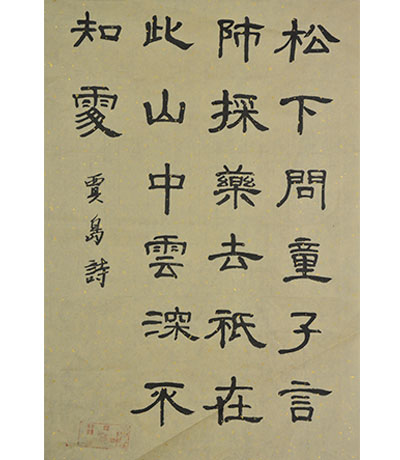 松下問童子言
師採藥去祇在
此山中雲深不
知處
賈島詩